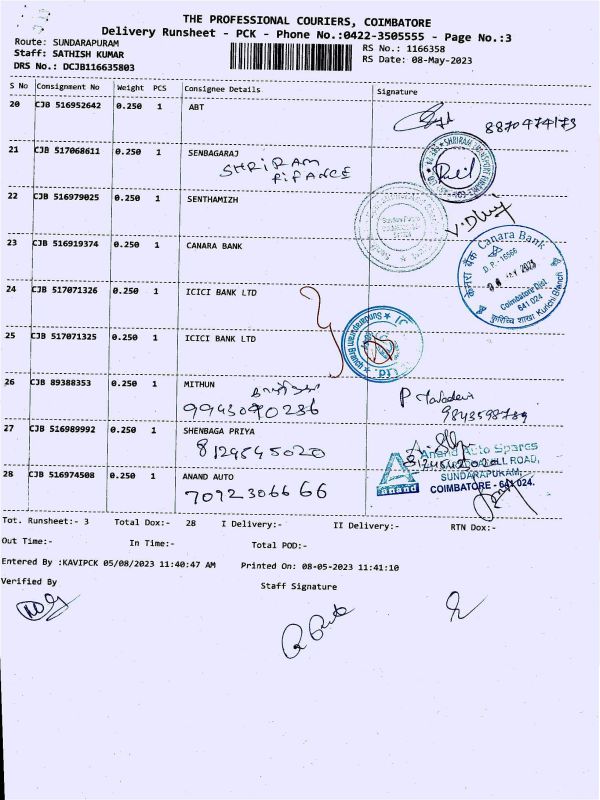 THE PROFESSIONAL COURIERS, COIMBATORE
Delivery Runsheet - PCK - Phone No.:0422-3505555 - Page No.:3
Route: SUNDARAPURAM
RS No.: 1166358
Staff: SATHISH KUMAR
RS Date: 08-May-2023
DRS No.: DCJB116635803
S No Consignment No Weight PCS Consignee Details Signature
20 CJB 516952642 0.250 1 ABT
8870474173
21 CJB 517068611 0.250 1 SENBAGARAJ
SHRIRAM
FIFANCE
22 CJB 516979025 0.250 1 SENTHAMIZH
23 CJB 516919374 0.250 1 CANARA BANK
केनरा बैंक Canara Bank
D.P.-16566
Coimbatore Dist
641 024
Kurichi Branch
24 CJB 517071326 1 ICICI BANK LTD
25 CJB 517071325 0.250 1 ICICI BANK LTD
Sundarapuram Branch
Ltd.
26 CJB 89388353 0.250 1 MITHUN
9943090236
9843598789
27 CJB 516989992 0.250 1 SHENBAGA PRIYA
8124545020
28 CJB 516974508 0.250 1 ANAND AUTO
7092306666
Anand Auto Spares
ROAD,
SUNDARAPURAM,
COIMBATORE - 641 024.
anand
Tot. Runsheet:- 3 Total Dox:- 28 I Delivery:- II Delivery:- RTN Dox:-
Out Time:- In Time:- Total POD:-
Entered By :KAVIPCK 05/08/2023 11:40:47 AM Printed On: 08-05-2023 11:41:10
Verified By Staff Signature